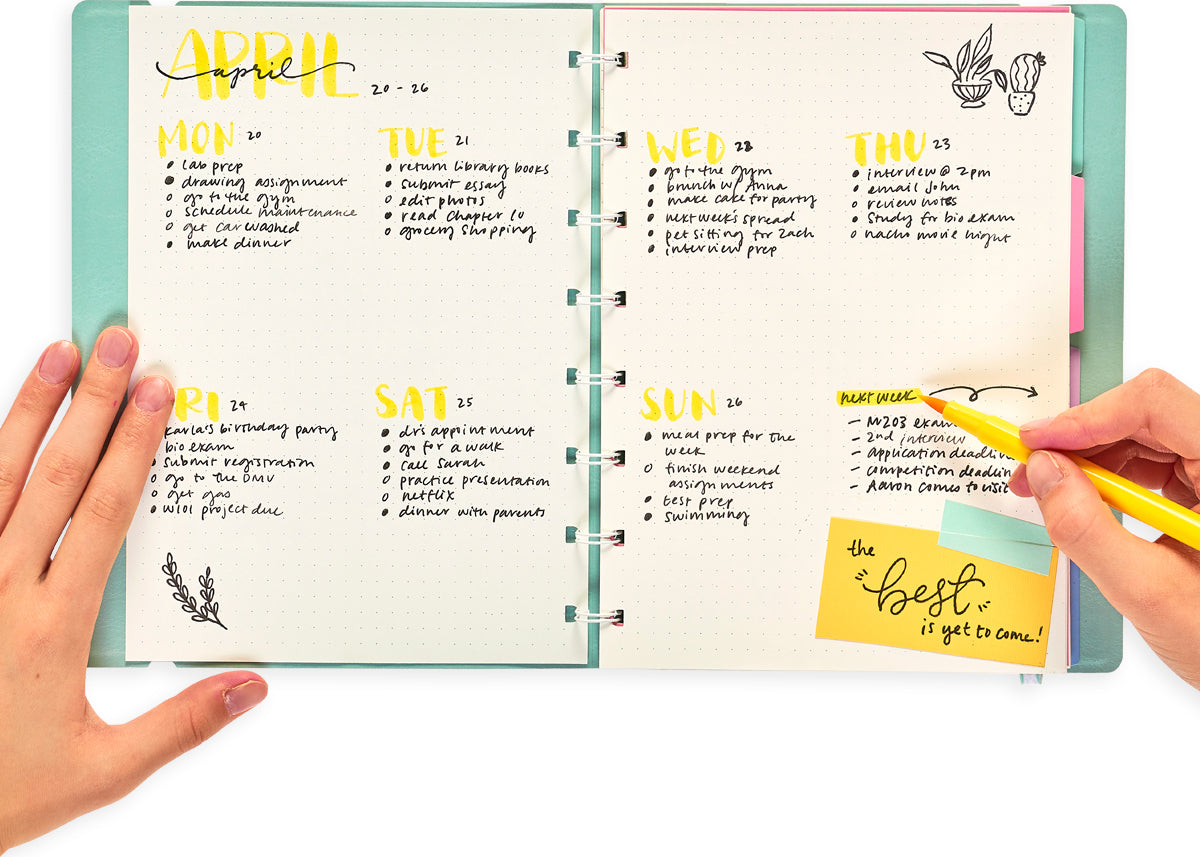 APRIL
april
20 - 26
MON 20
• lab prep
• drawing assignment
o go to the gym
o schedule maintenance
o get car washed
• make dinner
TUE 21
• return library books
• submit essay
o edit photos
• read Chapter 10
o grocery shopping
WED 22
• go to the gym
• brunch w/ Anna
• make cake for party
• next week's spread
• pet sitting for Zach
• interview prep
THU 23
• interview @ 2pm
• email John
o review notes
• Study for bio exam
o nacho movie night
RI 24
karla's birthday party
bio exam
• submit registration
o go to the DMV
o get gas
• W101 project due
SAT 25
• dr's appointment
• go for a walk
• call Sarah
o practice presentation
o netflix
• dinner with parents
SUN 26
• meal prep for the
week
o finish weekend
assignments
• test prep
• swimming
next week
- M203 exam
- 2nd interview
- application
- competition
- Aaron comes to visit
the
best
is yet to come!